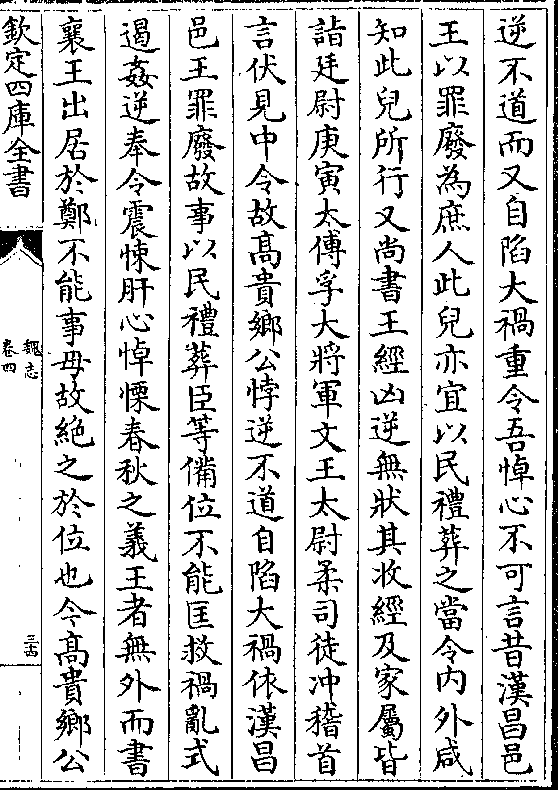 逆不道而又自陷大禍重令吾悼心不可言昔漢昌邑
王以罪廢為庶人此兒亦宜以民禮葬之當令内外咸
知此兒所行又尚書王經凶逆無狀其收經及家屬皆
詣廷尉庚寅太傅孚大將軍文王太尉柔司徒冲稽首
言伏見中令故高貴鄉公悖逆不道自陷大禍依漢昌
邑王罪廢故事以民禮葬臣等備位不能匡救禍亂式
遏姦逆奉令震悚肝心悼慄春秋之義王者無外而書
襄王出居於鄭不能事母故絶之於位也今高貴鄉公
欽定四庫全書
魏志
卷四
三古